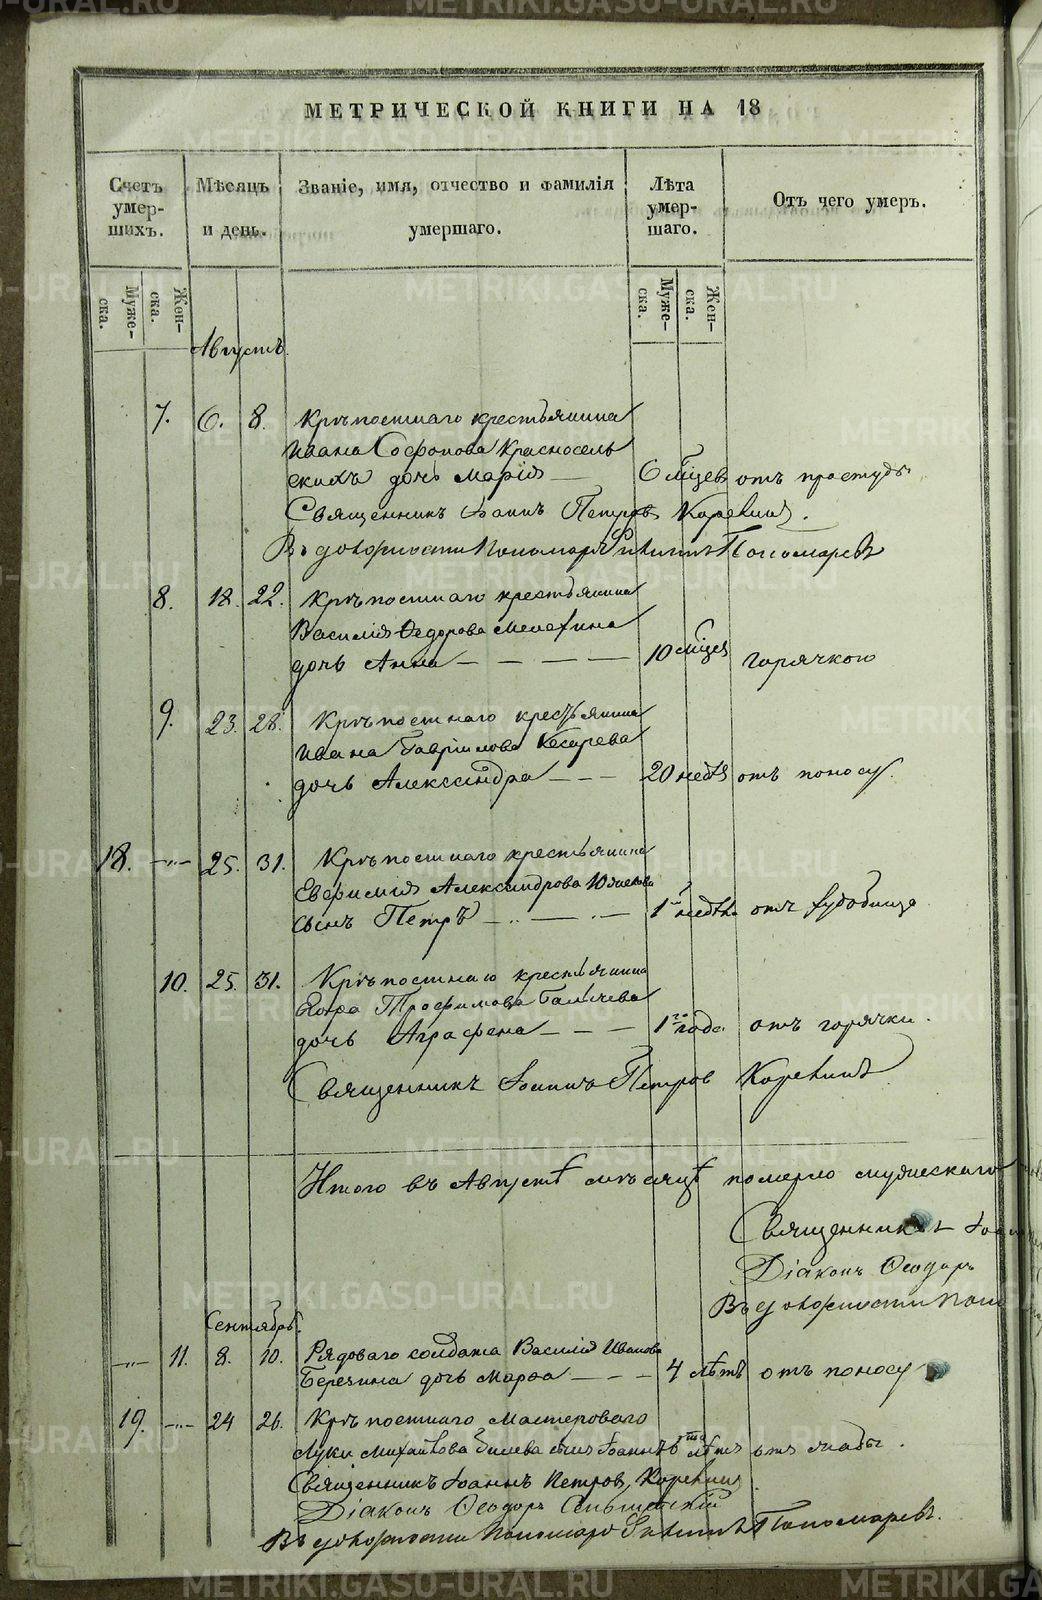 МЕТРИЧЕСКОЙ КНИГИ НА 18
Счетъ умер-шихъ.
Мѣсяцъ и день.
Званіе, имя, отчество и фамилія умершаго.
Лѣта умер-шаго.
Отъ чего умеръ.
Муже-ска. Жен-ска.
Муже-ска. Жен-ска.
Августъ.
7. 6. 8. Крѣпостнаго крестьянина
Ивана Софонова Красносель
скихъ дочь Марія — 6 мѣсцев отъ простуды
Священникъ Іоаннъ Петровъ
Въ должности Пономаря Пономаревъ
8. 18. 22. Крѣпостнаго крестьянина
Василія Ѳедорова Мелехина
дочь Анна — — — — 10 мѣсцев горячкою
9. 23. 28. Крѣпостнаго крестьянина
Ивана Гаврилова Кесарева
дочь Александра — — — 20 недѣл отъ поносу.
18. —"— 25. 31. Крѣпостнаго крестьянина
Евфимія Александрова
сынъ Петръ — 1 недѣли отъ
10. 25. 31. Крѣпостнаго крестьянина
Егора Трофимова
дочь Аграфена — — — 1го года отъ горячки.
Священникъ Іоаннъ Петров
Итого въ Августѣ мѣсяцѣ померло мужескаго
Священникъ
Діаконъ Ѳеодоръ
Въ должности Поно
Сентябрь.
—"— 11. 8. 10. Рядоваго солдата Василія Иванова
Березина дочь Марѳа — — — 4 лѣтъ отъ поносу
19. —"— 24 26. Крѣпостнаго Мастероваго
Луки Михайлова сынъ Іоаннъ лѣтъ отъ
Священникъ Іоаннъ Петров,
Діаконъ Ѳеодоръ
Въ должности Пономаря Пономаревъ.
METRIKI.GASO-URAL.RU